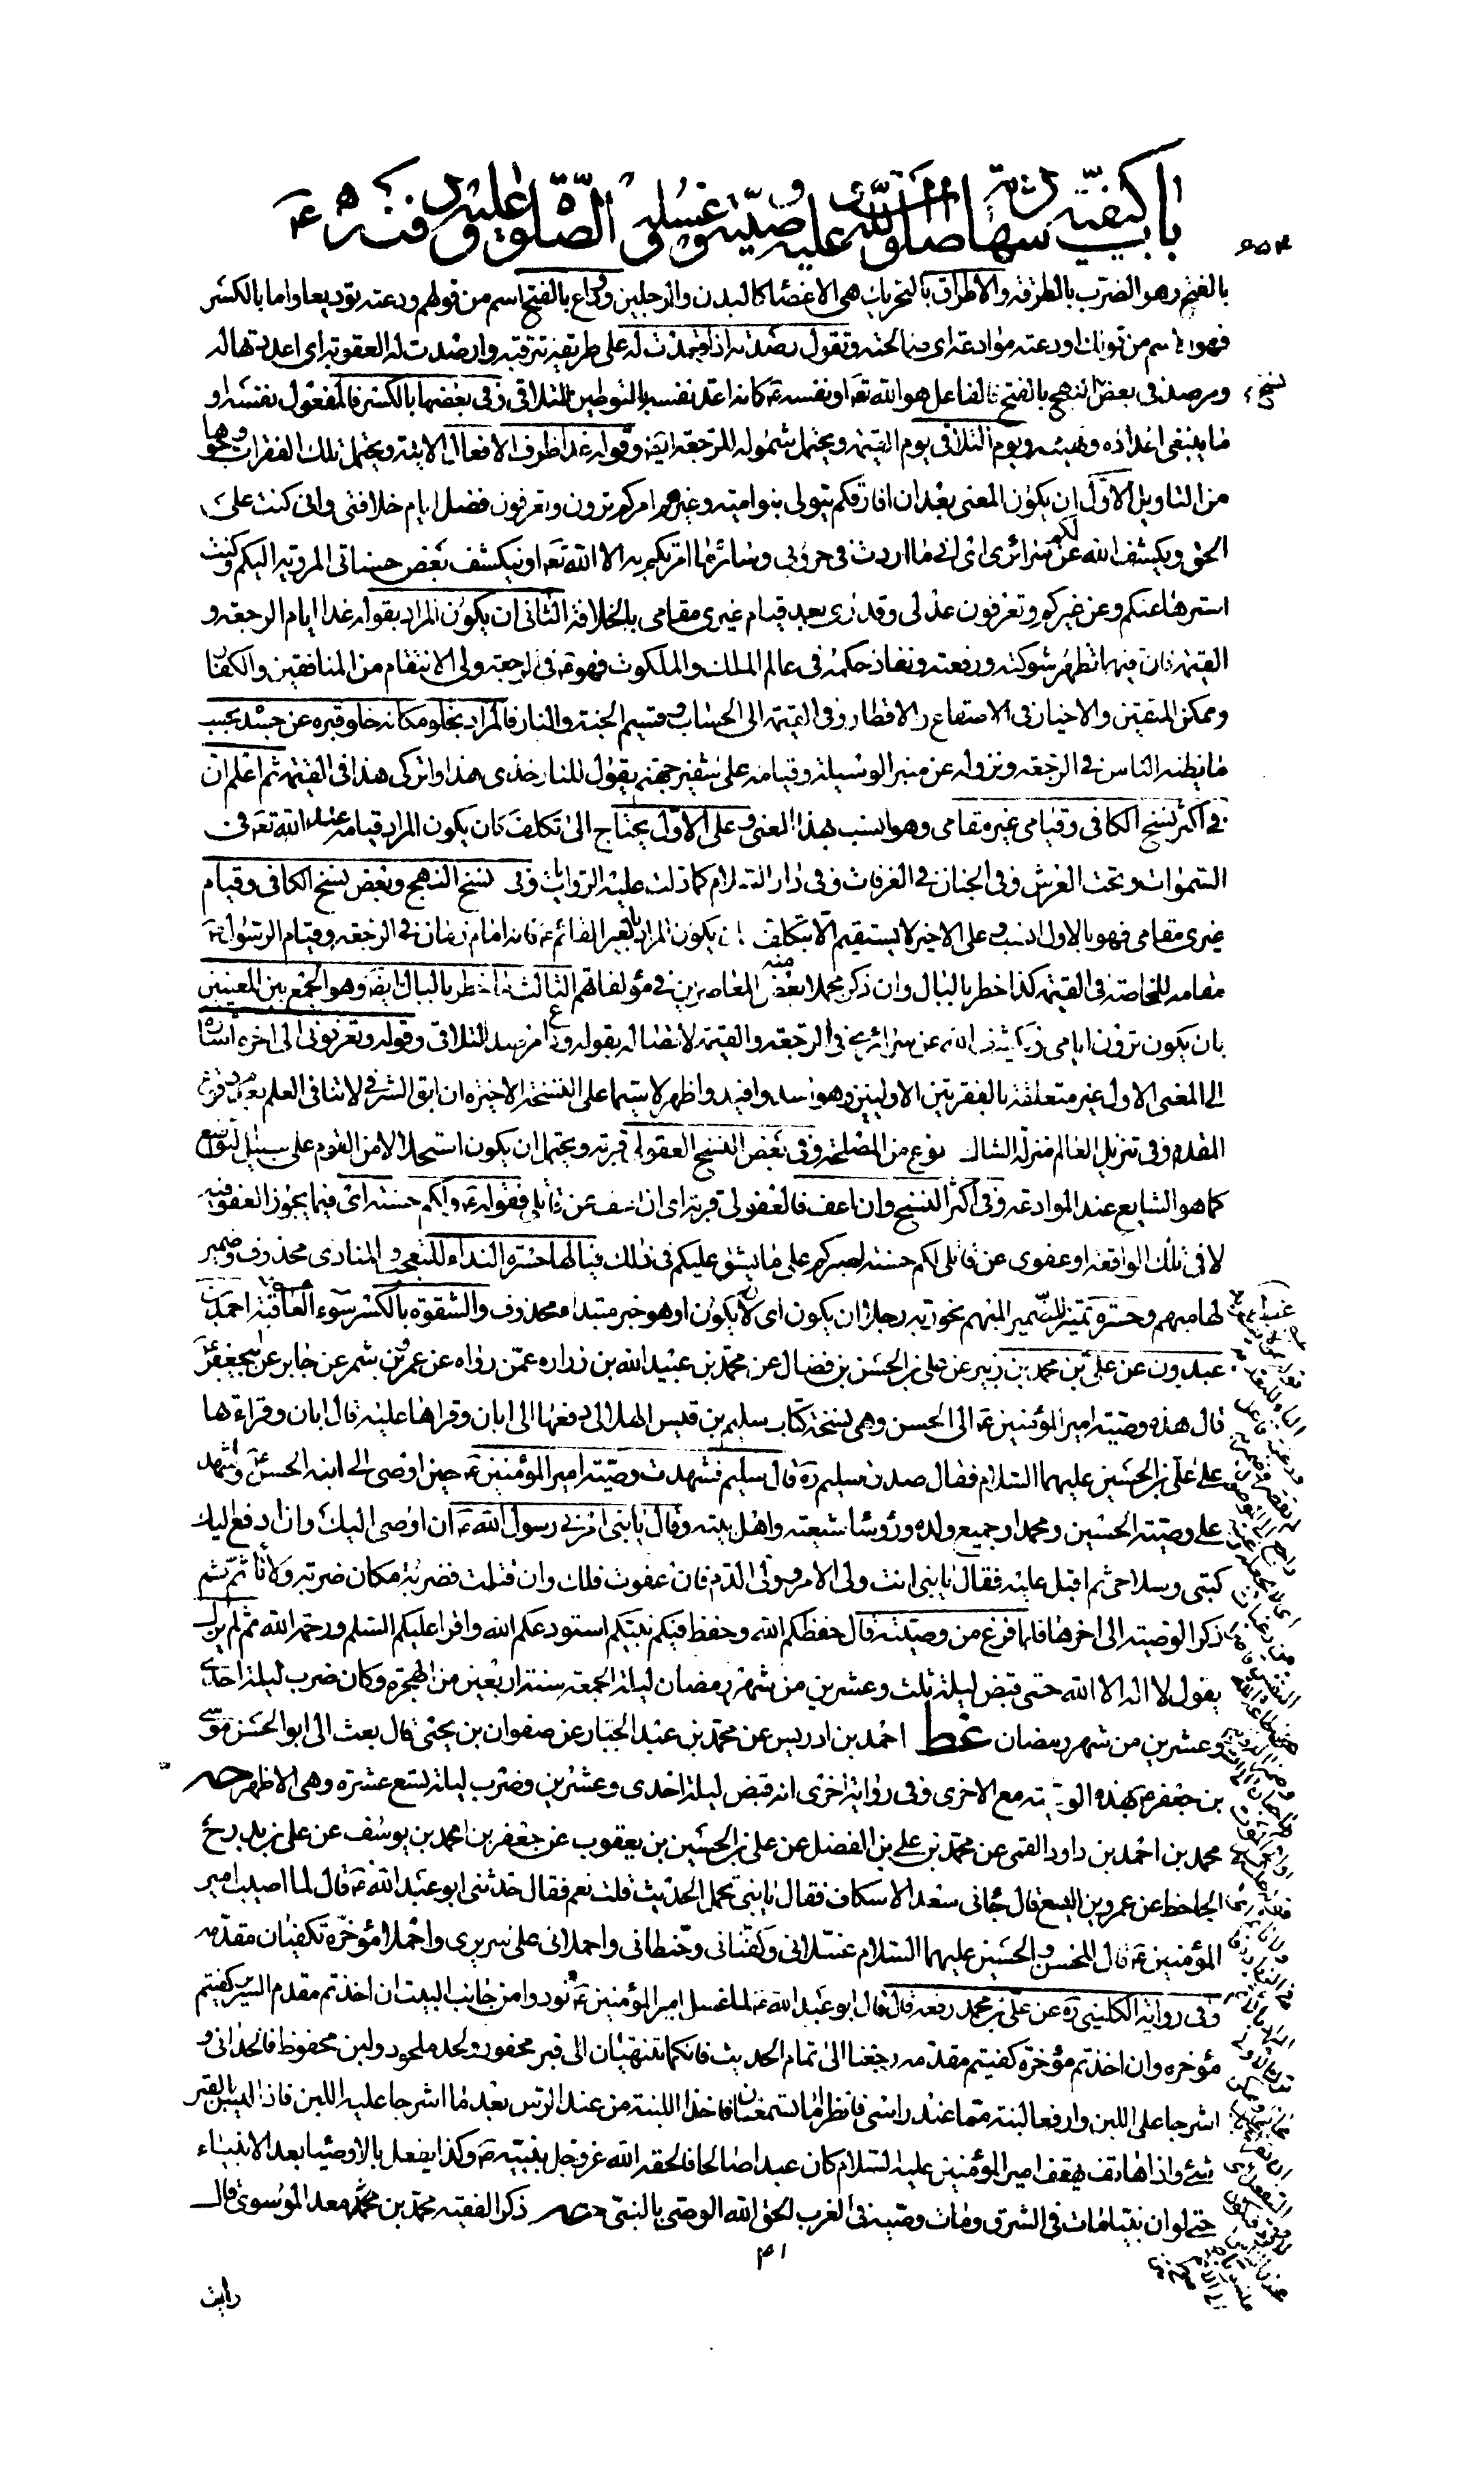 باب كيفية شهادته صلوات الله عليه و وصيته و غسله و الصلوة عليه و دفنه
بالفتح وهو الضرب بالمطرقة والاطراق بالتحريك هي الاعضاء كاليدين والرجلين وداع بالفتح اسم من قولهم ودعته توديعا واما بالكسر
فهو الاسم من قولك اودعته موادعة اى صالحته وتقول رصدته اذا قعدت له على طريقه تترقبه وارصدت له العقوبة اى اعددتها له
ومرصد فى بعض النهج بالفتح فالفاعل هو الله تعه او نفسه ع كانه اعد نفسه بالتوطين للتلاقى وفى بعضها بالكسر فالمفعول نفسه او
ما ينبغى اعداده وتهيئه ويوم التلاقى يوم القيمة ويحتمل شموله للرجعة ايضا وقوله غدا ظرف الافعال الاتية ويحتمل تلك الفقرات وجوها
من التاويل الاول ان يكون المعنى بعد ان افارقكم يتولى بنو امية وغيرهم امركم ترون وتعرفون فضل ايام خلافتى وانى كنت على
الحق ويكشف الله لكم عن سرائرى اى انى ما اردت فى حروبى وسائر ما امرتكم به الا الله تعه او ينكشف بعض حسناتى المروية اليكم وكنت
استرها عنكم وعن غيركم وتعرفون عدلى وقدرى بعد قيام غيرى مقامى بالخلافة الثانى ان يكون المراد بقوله غدا ايام الرجعة و
القيمة فان فيهما تظهر شوكته ورفعته ونفاذ حكمه فى عالم الملك والملكوت فهو ع فى الرجعة ولى الانتقام من المنافقين والكفار
وممكن المتقين والاخيار فى الاصقاع والاقطار وفى القيمة الى الحساب وقسيم الجنة والنار فالمراد بخلو مكانه خلو قبره عن جسده بحسب
ما يظنه الناس فى الرجعة ونزوله عن منبر الوسيلة وقيامه على شفير جهنم يقول للنار خذى هذا واتركى هذا فى القيمة ثم اعلم ان
فى اكثر نسخ الكافى وقيامى غير مقامى وهو انسب بهذا المعنى وعلى الاول يحتاج الى تكلف كان يكون المراد قيامه عند الله تعه فى
السموات وتحت العرش وفى الجنان فى الغرفات وفى دار السلام كما دلت عليه الروايات وفى نسخ النهج وبعض نسخ الكافى وقيام
غيرى مقامى فهو بالاول انسب وعلى الاخير لا يستقيم الا بتكلف ان يكون المراد بالغير القائم ع فانه امام زمان فى الرجعة وقيام الرسول ص
مقامه للمخاصمة فى القيمة كذا خطر بالبال وان ذكر مجملا منه بعض المعاصرين فى مؤلفاتهم الثالث ما خطر بالبال ايضا وهو الجمع بين المعنيين
بان يكون ترون ايامى ويكشف الله عن سرائرى فى الرجعة والقيمة لاتصاله بقوله وداع امر مرصد للتلاقى وقوله وتعرفونى الى اخره اشارة
الى المعنى الاول غير متعلقة بالفقرتين الاوليين وهو اسد وافيد واظهر لا سيما على النسخة الاخيرة ان ابق الشرطى لا تنافى العلم بعدم وقوع
المقدم وفى تنزيل العالم منزلة الشاك نوع من المصلحة وفى بعض النسخ العفو لى قربة ويحتمل ان يكون استحلالا من القوم على سبيل التواضع
كما هو الشايع عند الموادعة وفى اكثر النسخ وان اعف فالعفو لى قربة اى ان اعف عن قاتلى فقوله ع ولكم حسنة اى فيما يجوز العفو فيه
لا فى تلك الواقعة او عفوى عن قاتلى لكم حسنة لصبركم على ما يشق عليكم فى ذلك فيالها حسرة النداء للتعجب والمنادى محذوف وضمير
لها مبهم وحسرة تميز للضمير المبهم نحو ربه رجلا ان يكون اى لان يكون او هو خبر مبتداء محذوف والشقوة بالكسر سوء العاقبة احمد بن
عبدون عن على بن محمد بن زبير عن على بن الحسن بن فضال عن محمد بن عبد الله بن زراره عمن رواه عن عمرو بن شمر عن جابر عن ابى جعفر ع
قال هذه وصية امير المؤمنين ع الى الحسن وهى نسخة كتاب سليم بن قيس الهلالى دفعها الى ابان وقراها عليه قال ابان وقراءتها
على على بن الحسين عليهما السلام فقال صدق سليم ره قال سليم فشهدت وصية امير المؤمنين ع حين اوصى الى ابنه الحسن ع واشهد
على وصيته الحسين ومحمدا وجميع ولده ورؤسا شيعته واهل بيته وقال يا بنى امرنى رسول الله ص ان اوصى اليك وان ادفع اليك
كتبى وسلاحى ثم اقبل عليه فقال يا بنى انت ولى الامر وولى الدم فان عفوت فلك وان قتلت فضربة مكان ضربة ولا تاثم ثم
ذكر الوصية الى اخرها فلما فرغ من وصيته قال حفظكم الله وحفظ فيكم نبيكم استودعكم الله واقرا عليكم السلم ورحمة الله ثم لم يزل
يقول لا اله الا الله حتى قبض ليلة ثلث وعشرين من شهر رمضان ليلة الجمعة سنة اربعين من الهجرة وكان ضرب ليلة احدى
وعشرين من شهر رمضان غط احمد بن ادريس عن محمد بن عبد الجبار عن صفوان بن يحيى قال بعث الى ابو الحسن موسى
بن جعفر ع بهذه الوصية مع الاخرى وفى رواية اخرى انه قبض ليلة احدى وعشرين وضرب ليلة تسع عشرة وهى الاظهر حه
محمد بن احمد بن داود القمى عن محمد بن على بن الفضل عن على بن الحسين بن يعقوب عن جعفر بن احمد بن يوسف عن على بن بزرج
الجاحظ عن عمرو بن اليسع قال جائنى سعد الاسكاف فقال يا بنى تحمل الحديث قلت نعم فقال حدثنى ابو عبد الله ع قال لما اصيب امير
المؤمنين ع قال للحسن والحسين عليهما السلام غسلانى وكفنانى وحنطانى واحملانى على سريرى واحملا مؤخره تكفيان مقدمه
وفى رواية الكلينى ره عن على بن محمد رفعه قال قال ابو عبد الله ع لما غسل امير المؤمنين ع نودوا من جانب البيت ان اخذتم مقدم السرير كفيتم
مؤخره وان اخذتم مؤخره كفيتم مقدمه رجعنا الى تمام الحديث فانكما تنتهيان الى قبر محفور ولحد ملحود ولبن محفوظ فالحدانى و
اشرجا على اللبن وارفعا لبنة مما عند راسى فانظرا ما تسمعان فاخذا اللبنة من عند الراس بعد ما اشرجا عليه اللبن فاذا ليس بالقبر
شئ واذا هاتف يهتف امير المؤمنين عليه السلام كان عبدا صالحا فالحقه الله عز وجل بنبيه ص وكذا يفعل بالاوصيا بعد الانبياء
حتى لو ان نبيا مات فى الشرق ومات وصيه فى الغرب لحق الله الوصى بالنبى حه ذكر الفقيه محمد بن محمد معد الموسوى قال
رايت